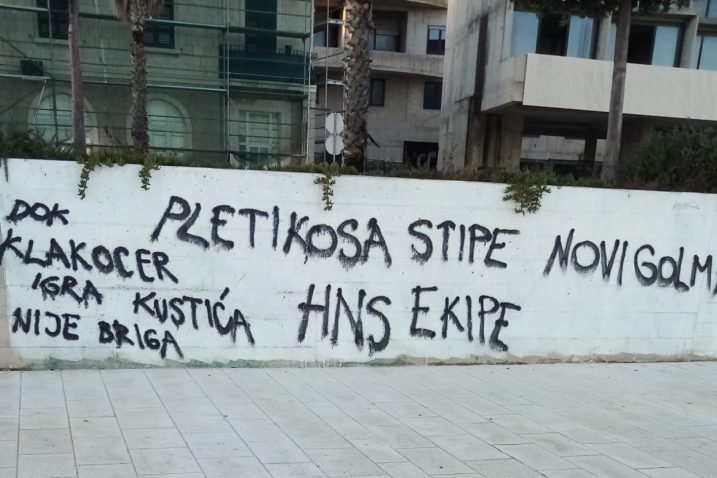 DOK
KLAKOCER
IGRA
NIJE BRIGA
KUSTIĆA
PLETIKOSA STIPE
HNS EKIPE
NOVI GOLM